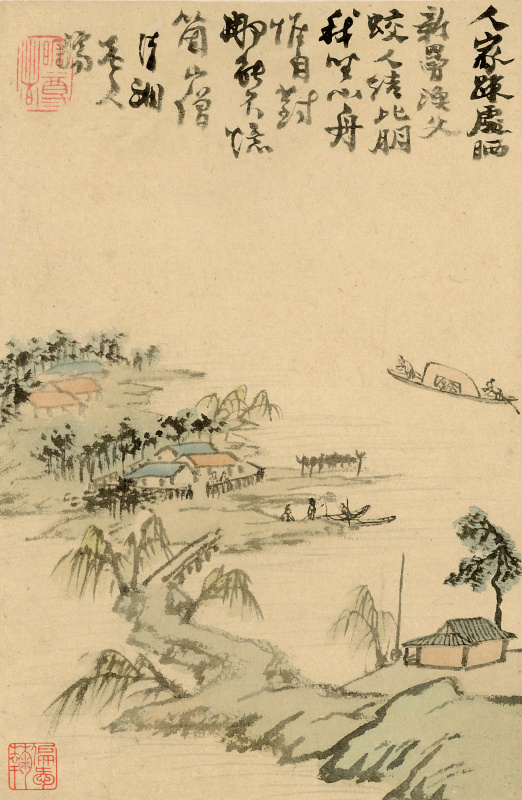 人家疎處晒
新罾漁父
蛟人結比朋
我坐小舟
惟自對
那能不憶
箇山僧
清湘
老人
濤